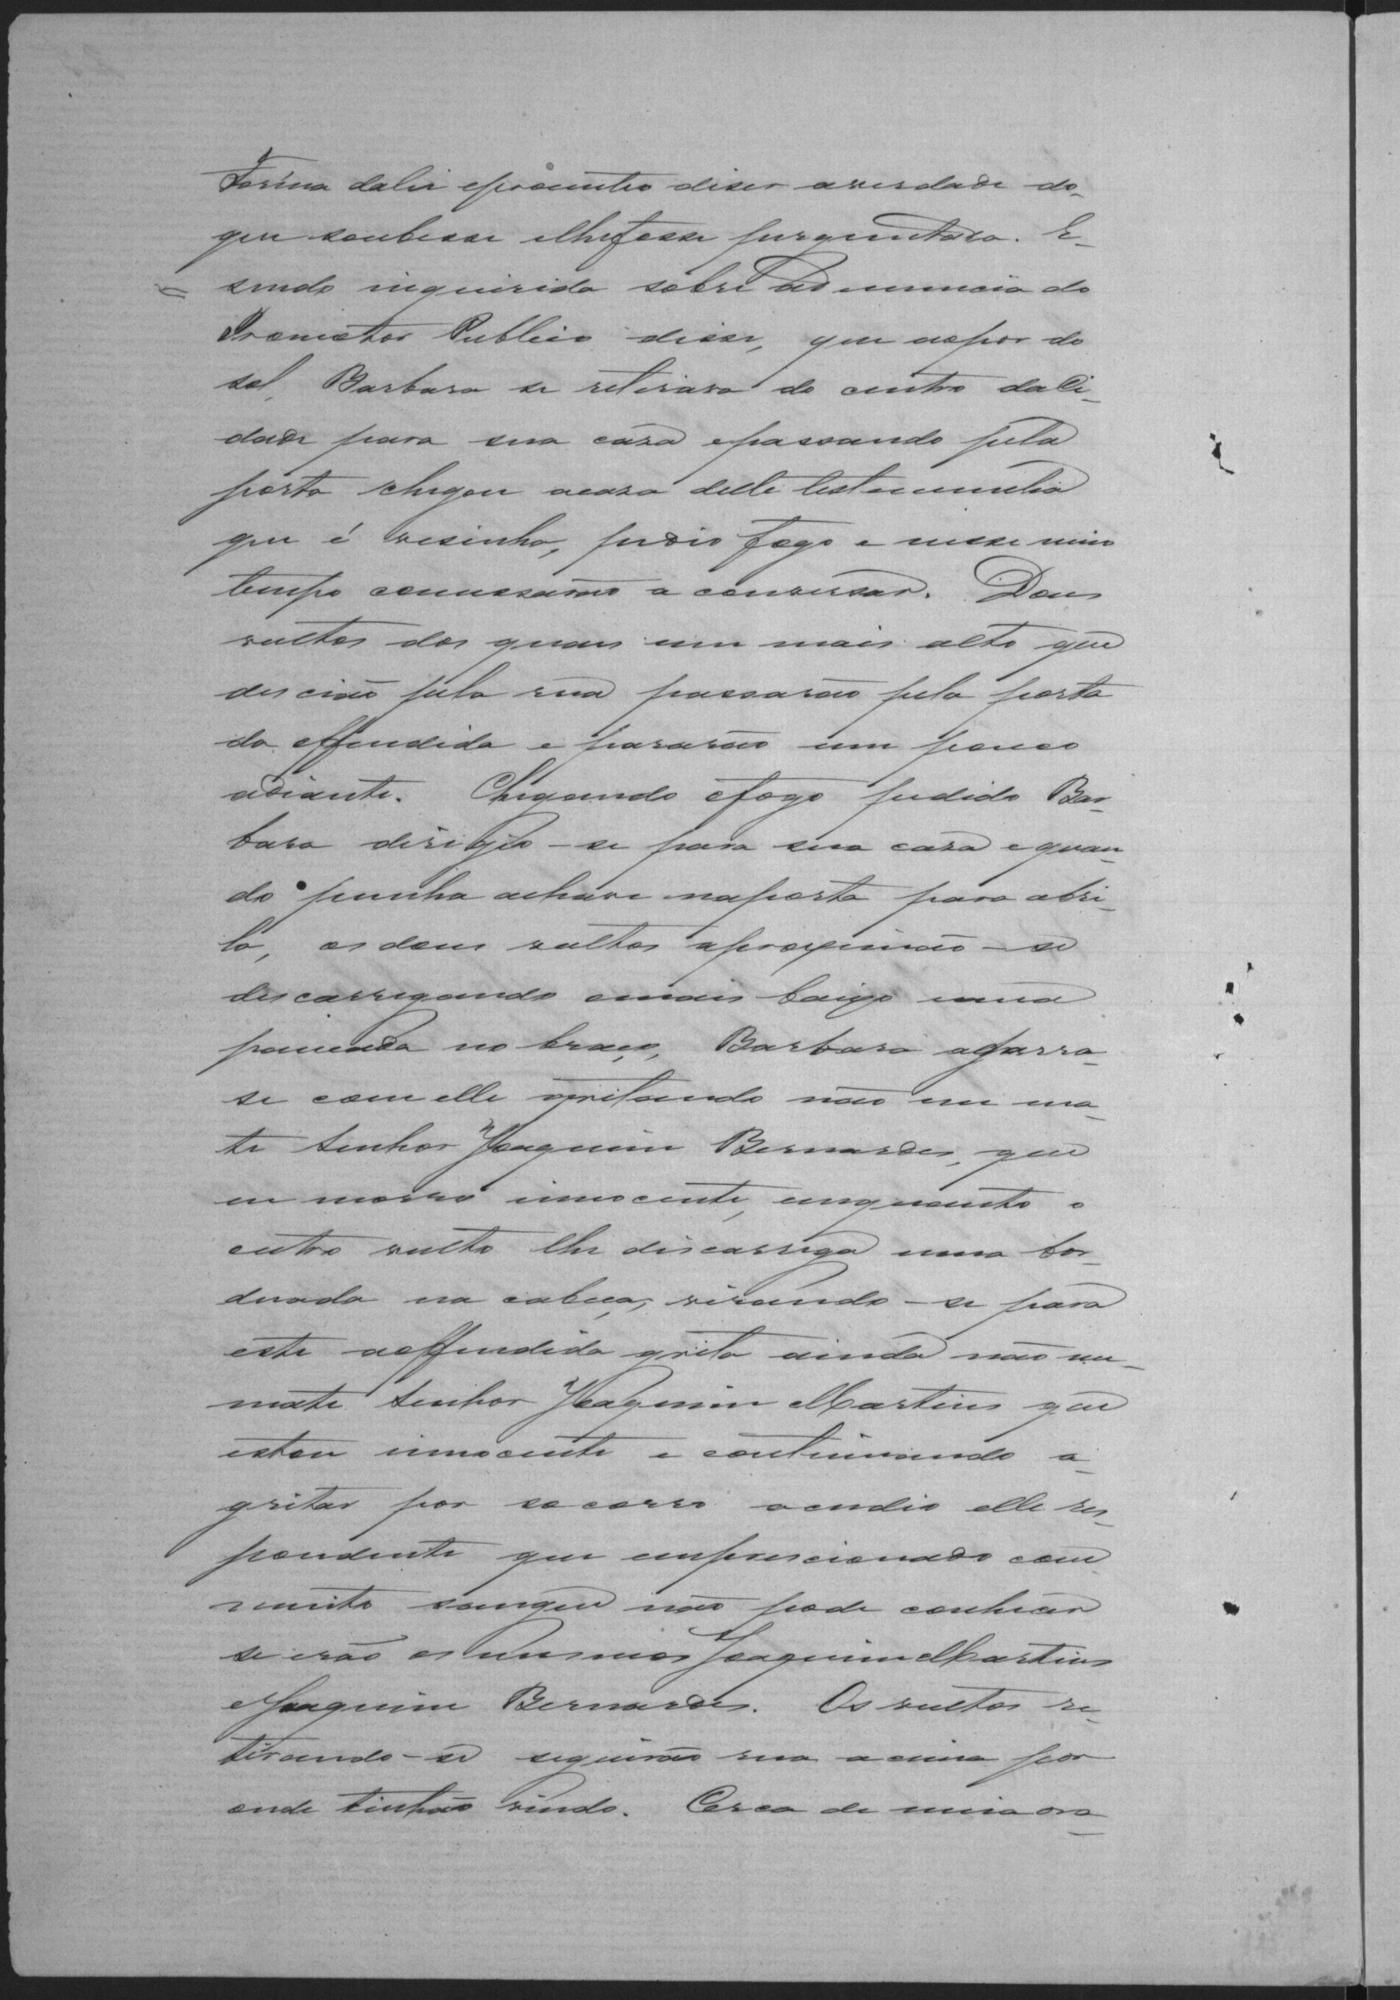 forma da lei e prometteo diser a verdade do
que soubesse e lhe fosse perguntado. E
sendo inquirida sobre a denuncia do
Promotor Publico disse, que ao por do
sol, Barbara se retirava do centro da Ci-
dade para sua casa e passando pela
porta chegou a casa delle testemunha
que é visinho, pedio fogo e nesse meio
tempo comessarão a conversar. Dous
vultos dos quaes um mais alto que
descião pela rua passarão pela porta
da offendida e pararão um pouco
adiante. Chegando o fogo pedido Bar-
bara dirigio-se para sua casa e quan-
do punha a chave na porta para abri-
la, os dous vultos aproximão-se
descarregando o mais baixo uma
paucada no braço, Barbara agarra-
se com elle gritando não me ma-
te Senhor Joaquim Bernardes, que
eu morro innocente, emquanto o
outro vulto lhe discarrega uma bor-
duada na cabeça, virando-se para
este a offendida grita ainda não me-
mate Senhor Joaquim Martins que
estou innocente e continuando a-
gritar por socorro acudio elle res-
pondente que empressionado com
muito sangue não pode conhecer
se erão os mesmos Joaquim Martins
e Joaquim Bernardes. Os vultos re-
tirando-se seguirão rua acima por
onde tinhão vindo. Cerca de meia ora